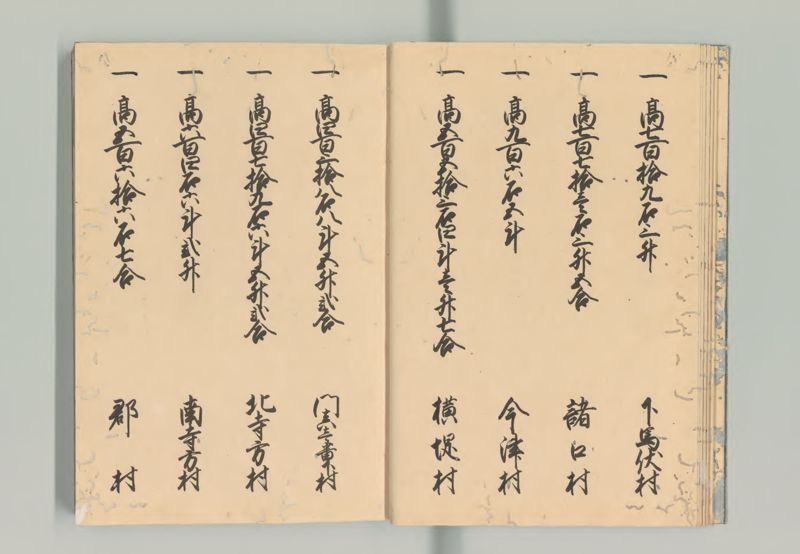 一 高七百拾九石三升 下馬伏村
一 高七百七拾壱石三升五合 諸口村
一 高九百六石五斗 今津村
一 高五百五拾三石四斗壱升七合 横堤村
一 高四百三拾八石八斗五升弐合 門真三番村
一 高四百七拾九石六斗五升弐合 北寺方村
一 高六百四石六斗弐升 南寺方村
一 高五百六拾六石七合 郡村